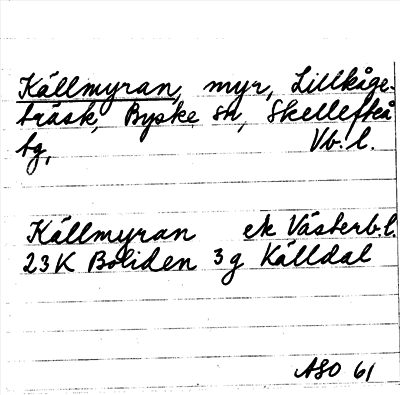 Källmyran, myr, Lillkåge-
träsk, Byske sn, Skellefteå
tg, Vb. l.
Källmyran ek Västerb.l.
23K Boliden 3g Källdal
ASO 61